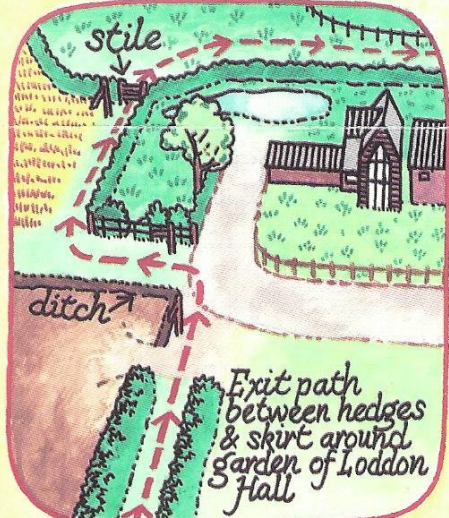 stile
ditch
Exit path
between hedges
& skirt around
garden of Loddon
Hall